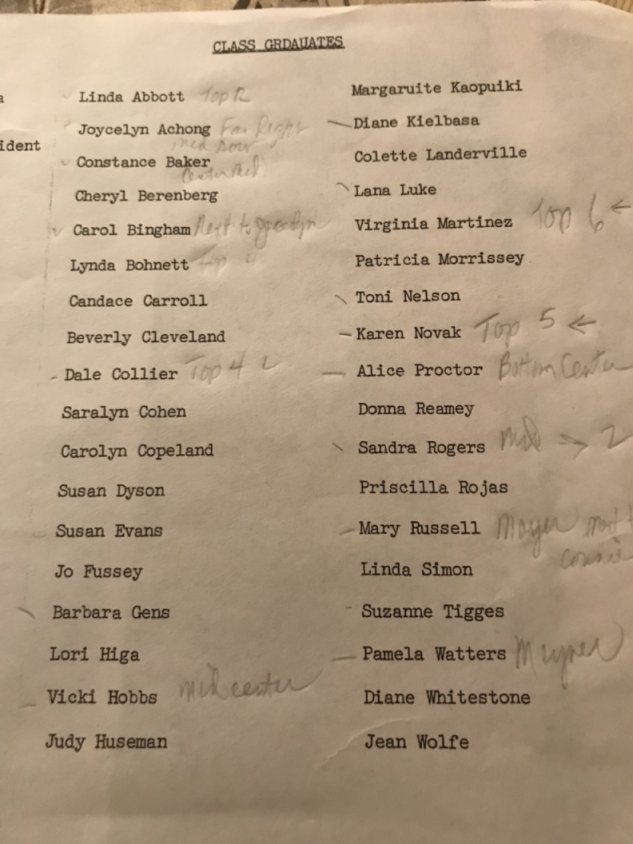 CLASS GRDAUATES
a
ident
Linda Abbott Top R
Joycelyn Achong Far Right
Constance Baker
Cheryl Berenberg
Carol Bingham Next to Joycelyn
Lynda Bohnett Top
Candace Carroll
Beverly Cleveland
Dale Collier Top 4
Saralyn Cohen
Carolyn Copeland
Susan Dyson
Susan Evans
Jo Fussey
Barbara Gens
Lori Higa
Vicki Hobbs mid center
Judy Huseman
Margaruite Kaopuiki
Diane Kielbasa
Colette Landerville
Lana Luke
Virginia Martinez Top 6 ←
Patricia Morrissey
Toni Nelson
Karen Novak Top 5 ←
Alice Proctor Bottom Center
Donna Reamey
Sandra Rogers Mid → 2
Priscilla Rojas
Mary Russell
Linda Simon
Suzanne Tigges
Pamela Watters
Diane Whitestone
Jean Wolfe